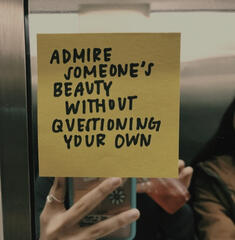 ADMIRE
SOMEONE'S
BEAUTY
WITHOUT
QUESTIONING
YOUR OWN